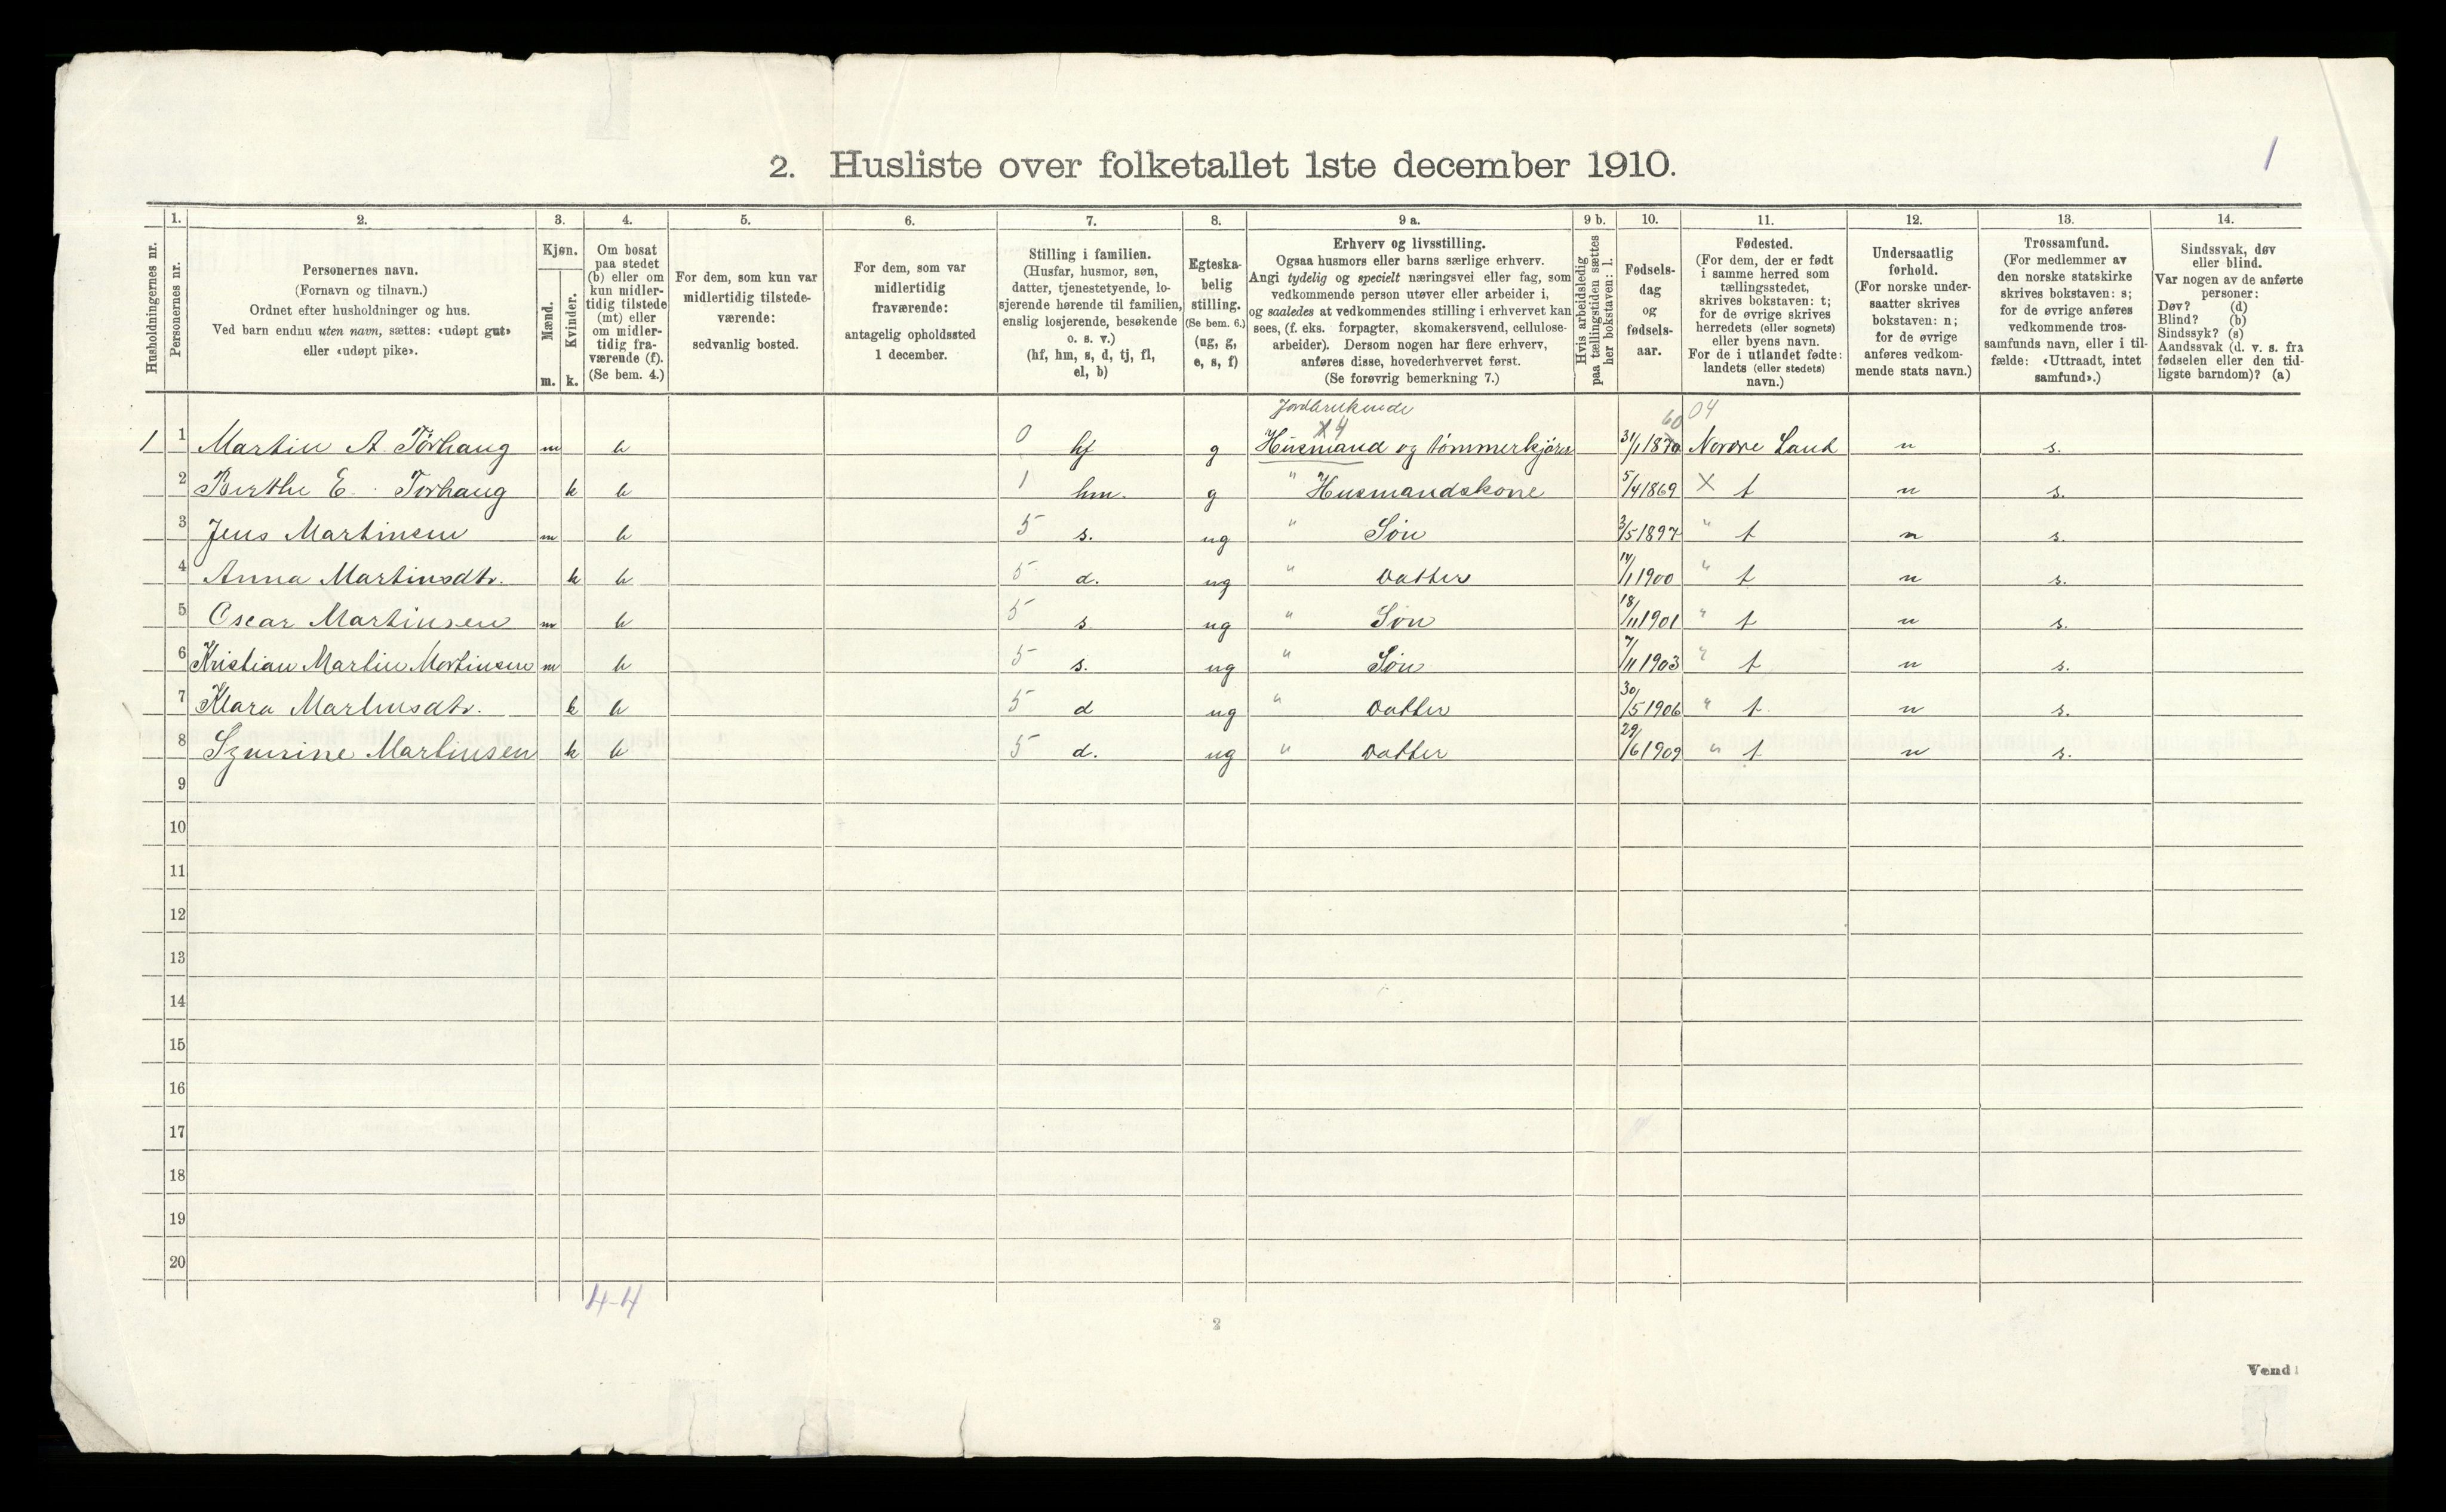 1
2. Husliste over folketallet 1ste december 1910.
Husholdningernes nr.
1.
Personernes nr.
2.
Personernes navn.
(Fornavn og tilnavn.)
Ordnet efter husholdninger og hus.
Ved barn endnu uten navn, sættes: «udøpt gut»
eller «udøpt pike».
3.
Kjøn.
Mænd.
m.
Kvinder.
k.
4.
Om bosat
paa stedet
(b) eller om
kun midler-
tidig tilstede
(mt) eller
om midler-
tidig fra-
værende (f).
(Se bem. 4.)
5.
For dem, som kun var
midlertidig tilstede-
værende:
sedvanlig bosted.
6.
For dem, som var
midlertidig
fraværende:
antagelig opholdssted
1 december.
7.
Stilling i familien.
(Husfar, husmor, søn,
datter, tjenestetyende, lo-
sjerende hørende til familien,
enslig losjerende, besøkende
o. s. v.)
(hf, hm, s, d, tj, fl,
el, b)
8.
Egteska-
belig
stilling.
(Se bem. 6.)
(ug, g,
e, s, f)
9 a.
Erhverv og livsstilling.
Ogsaa husmors eller barns særlige erhverv.
Angi tydelig og specielt næringsvei eller fag, som
vedkommende person utøver eller arbeider i,
og saaledes at vedkommendes stilling i erhvervet kan
sees, (f. eks. forpagter, skomakersvend, cellulose-
arbeider). Dersom nogen har flere erhverv,
anføres disse, hovederhvervet først.
(Se forøvrig bemerkning 7.)
9 b.
Hvis arbeidsledig
paa tællingstiden sættes
her bokstaven: l.
10.
Fødsels-
dag
og
fødsels-
aar.
11.
Fødested.
(For dem, der er født
i samme herred som
tællingsstedet,
skrives bokstaven: t;
for de øvrige skrives
herredets (eller sognets)
eller byens navn.
For de i utlandet fødte:
landets (eller stedets)
navn.)
12.
Undersaatlig
forhold.
(For norske under-
saatter skrives
bokstaven: n;
for de øvrige
anføres vedkom-
mende stats navn.)
13.
Trossamfund.
(For medlemmer av
den norske statskirke
skrives bokstaven: s;
for de øvrige anføres
vedkommende tros-
samfunds navn, eller i til-
fælde: «Uttraadt, intet
samfund».)
14.
Sindssvak, døv
eller blind.
Var nogen av de anførte
personer:
Døv? (d)
Blind? (b)
Sindssyk? (s)
Aandssvak (d. v. s. fra
fødselen eller den tid-
ligste barndom)? (a)
Jordbrukende
X4 60 04
1 1 Martin A. Torhaug m b 0 hf g Husmand og tømmerkjører 31/1 1870 Nordre Land n s.
2 Berthe E. Torhaug k b 1 hm. g " Husmandskone 5/4 1869 X t n s.
3 Jens Martinsen m b 5 s. ug " Søn 3/5 1897 " t n s.
4 Anna Martinsdtr. k b 5 d. ug " Datter 14/1 1900 " t n s.
5 Oscar Martinsen m b 5 s. ug " Søn 18/11 1901 " t n s.
6 Kristian Martin Martinsen m b 5 s. ug " Søn 7/11 1903 " t n s.
7 Klara Martinsdtr. k b 5 d ug " Datter 30/5 1906 " t. n s.
8 Martinsen k b 5 d. ug " Datter 29/6 1909 " t n s.
9
10
11
12
13
14
15
16
17
18
19
20
4-4
2
Vend!